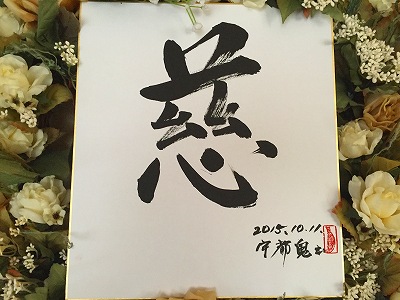 慈
2015.10.11.
宇都鬼